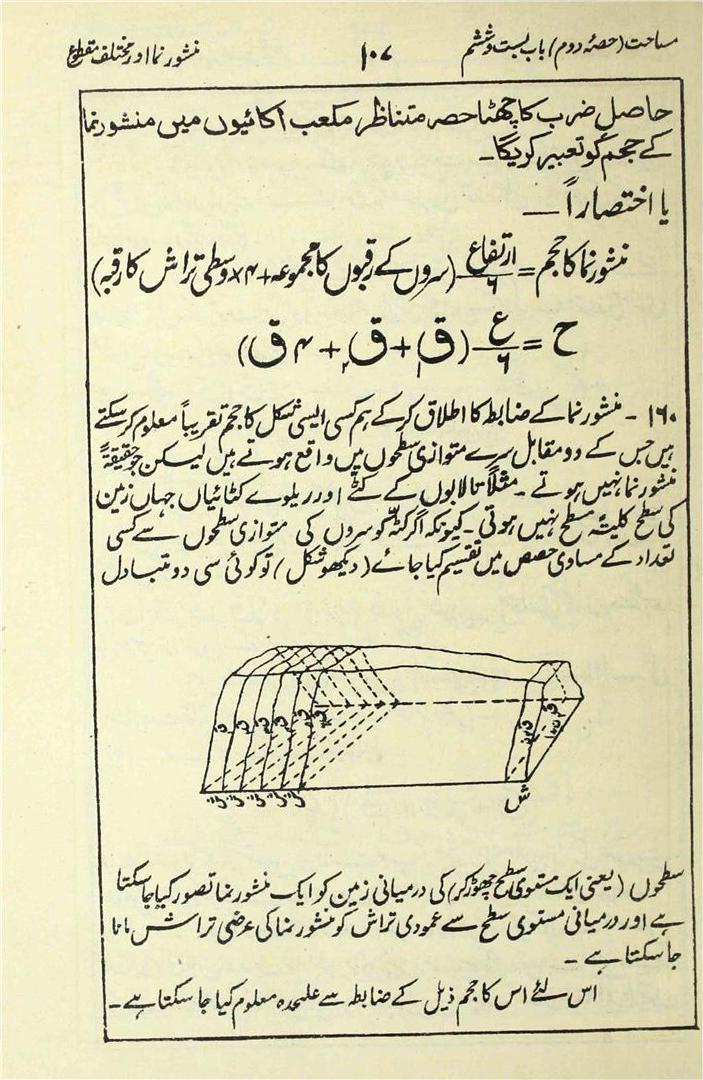 مساحت (حصۂ دوم) باب بست و ششم
۱۰۷
منشور نما اور مختلف مقطوع
حاصل ضرب کا چھٹا حصہ متناظر مکعب اکائیوں میں منشور نما
کے حجم کو تعبیر کریگا۔
یا اختصاراً —
منشور نما کا حجم = ارتفاع/۶ (سروں کے رقبوں کا مجموعہ + ۴ × وسطی تراش کا رقبہ)
ح = ع/۶ (ق۱ + ق۲ + ۴ ق)
۱۶۰ ۔ منشور نما کے ضابطہ کا اطلاق کرکے ہم کسی ایسی شکل کا حجم تقریباً معلوم کرسکتے
ہیں جس کے دو مقابل سرے متوازی سطحوں میں واقع ہوتے ہیں لیکن جو حقیقۃً
منشور نما نہیں ہوتے ۔ مثلاً تالابوں کے کٹے اور ریلوے کٹائیاں جہاں زمین
کی سطح کلیتہً مسطح نہیں ہوتی ۔ کیونکہ اگر کٹہ کو سروں کی متوازی سطحوں سے کسی
تعداد کے مساوی حصص میں تقسیم کیا جائے (دیکھو شکل) تو کوئی سی دو متبادل
ش
سطحوں (یعنی ایک مستوی سطح چھوڑ کر) کی درمیانی زمین کو ایک منشور نما تصور کیا جاسکتا
ہے اور درمیانی مستوی سطح سے عمودی تراش کو منشور نما کی عرضی تراش مانا
جا سکتا ہے ۔
اس لئے اس کا حجم ذیل کے ضابطہ سے علیحدہ معلوم کیا جا سکتا ہے ۔